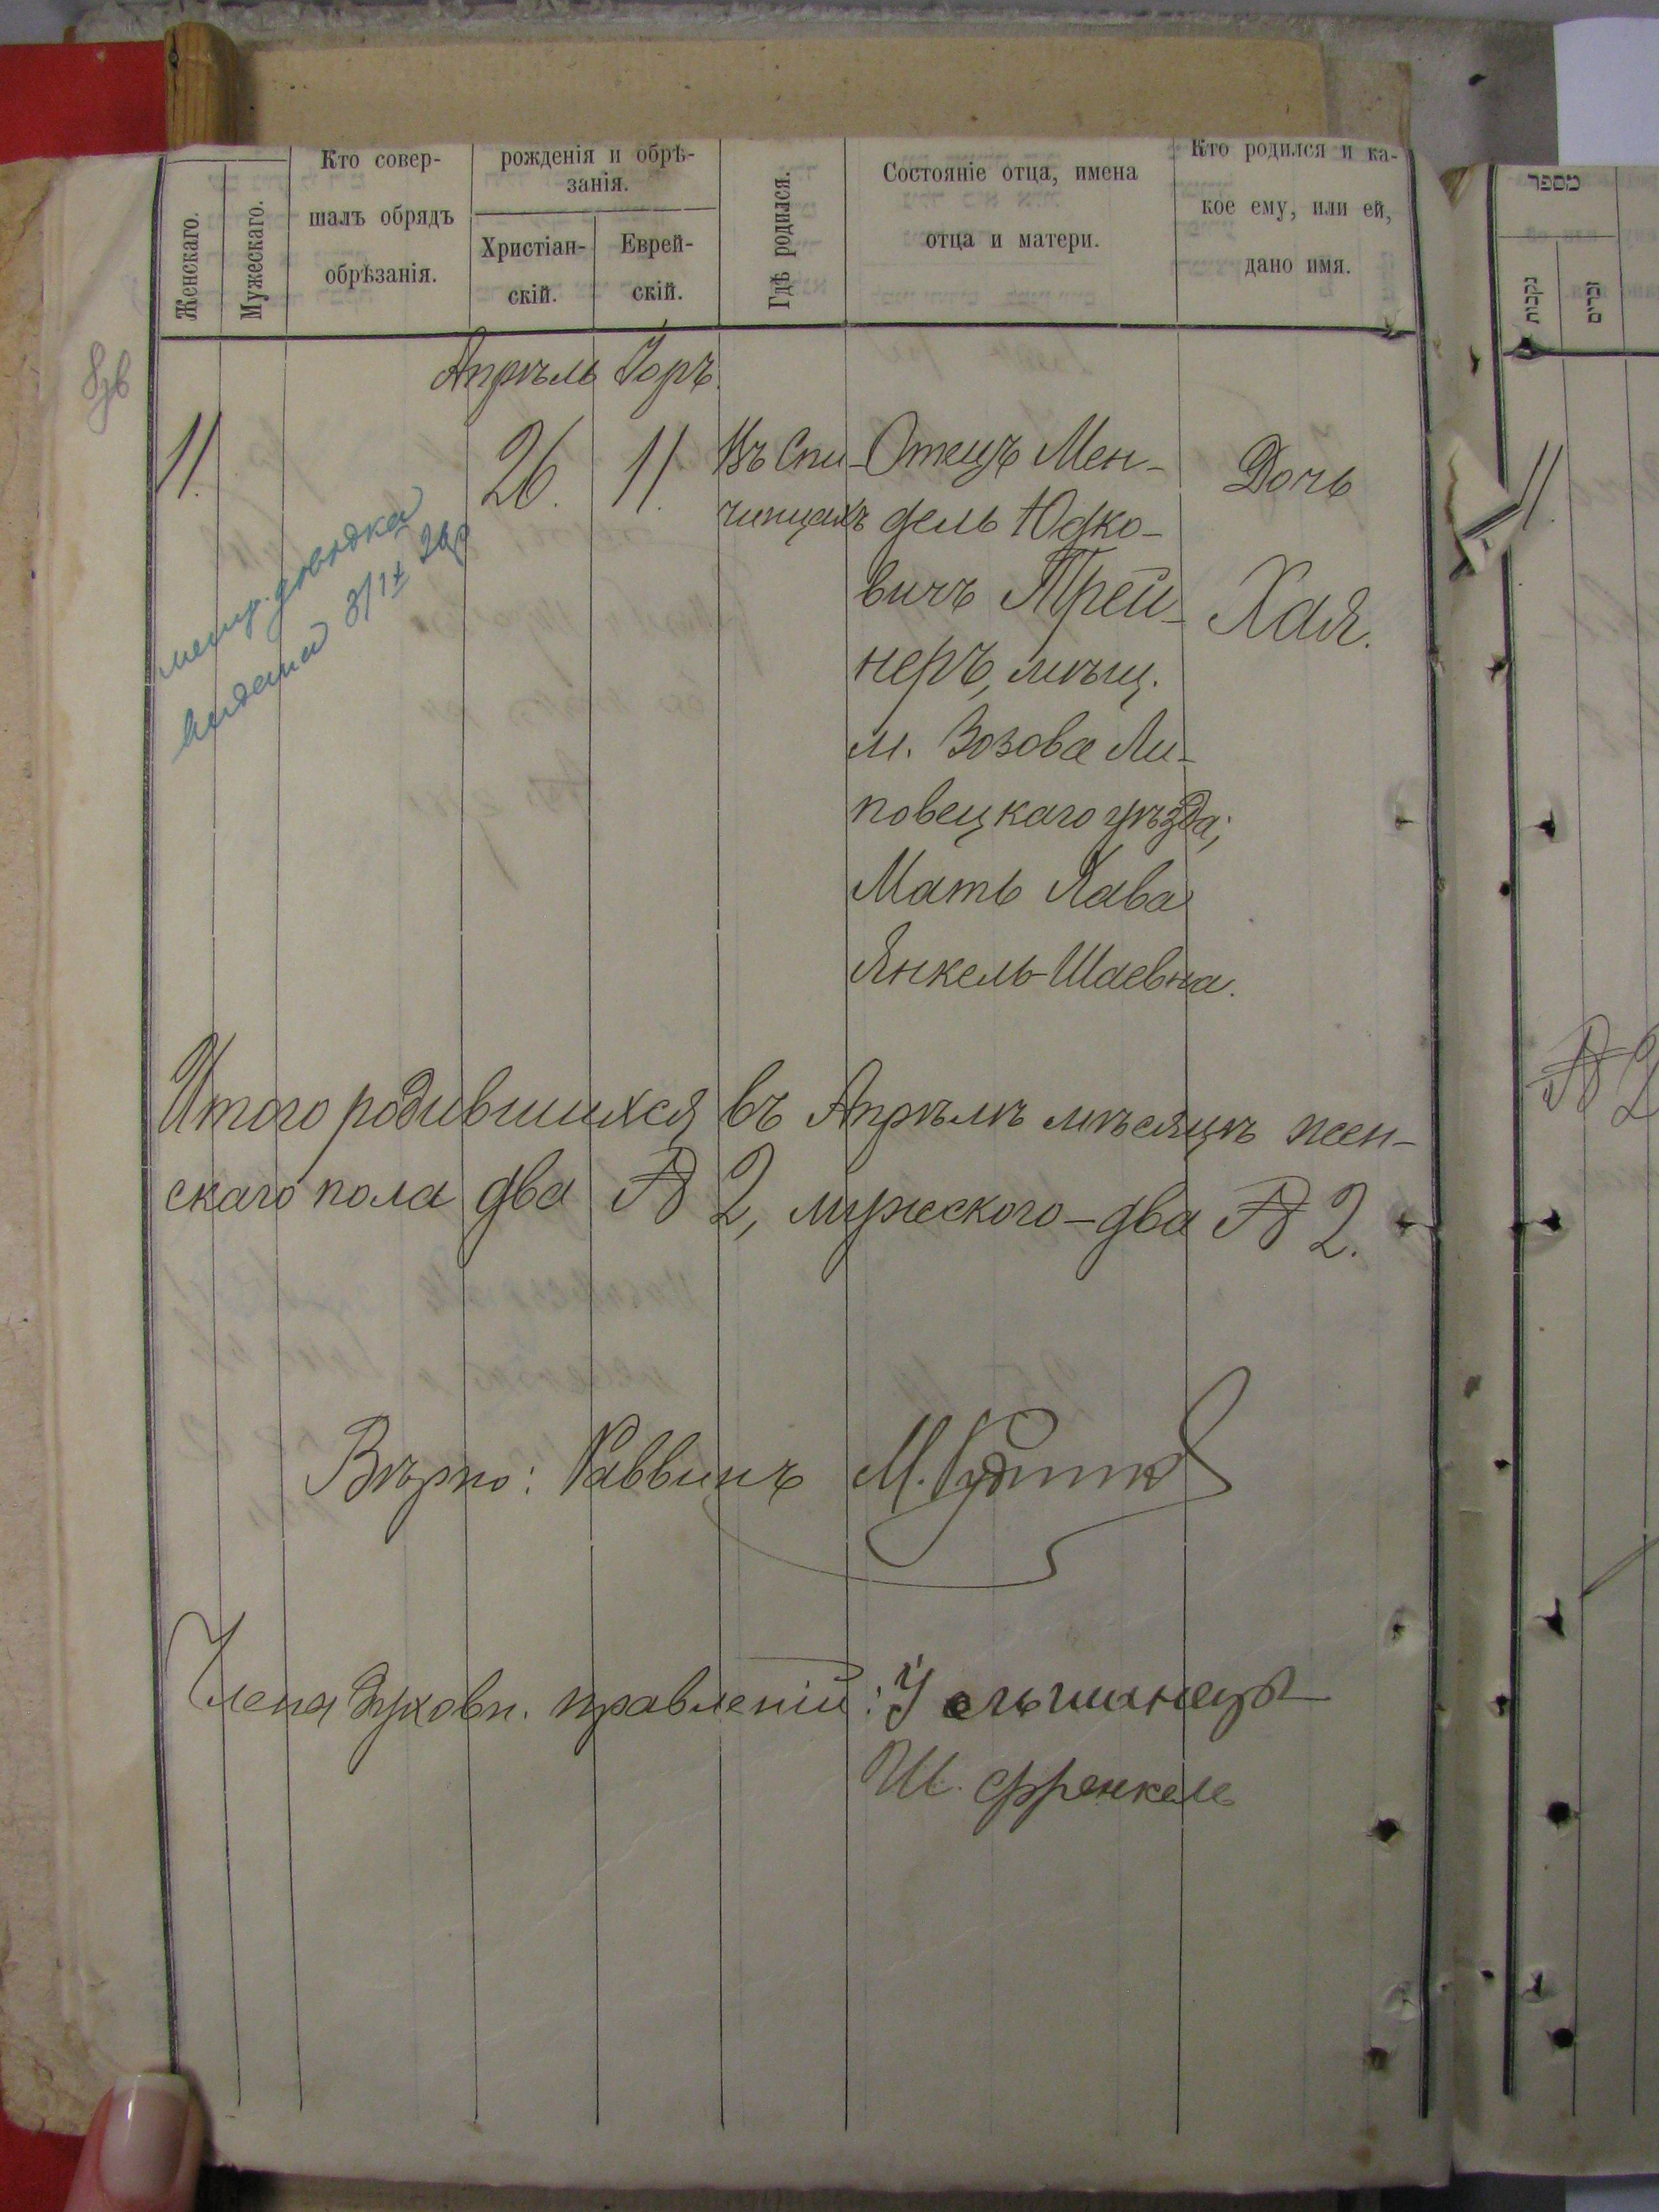 Женскаго.
Мужескаго.
Кто совер-
шалъ обрядъ
обрѣзанія.
рожденія и обрѣ-
занія.
Христіан-
скій.
Еврей-
скій.
Гдѣ родился.
Состояніе отца, имена
отца и матери.
Кто родился и ка-
кое ему, или ей,
дано имя.
מספר
נקבות
זכרים
Апрѣль Іоръ.
11.
26.
11.
Въ Спи-
чинцахъ
Отецъ Мен-
дель Юдко-
вичъ Трей-
неръ, мѣщ.
м. Зозова Ли-
повецкаго уѣзда;
Мать Хава
Янкель-Шаевна.
Дочь
Хая.
11.
метр. довідка
видана 3/IX 26р
Итого родившихся въ Апрѣлѣ мѣсяцѣ жен-
скаго пола два № 2, мужескаго - два № 2.
№ 2
Вѣрно: Раввинъ М.
Члена духовн. правленій: У ельшанецъ
Ш. Френкель